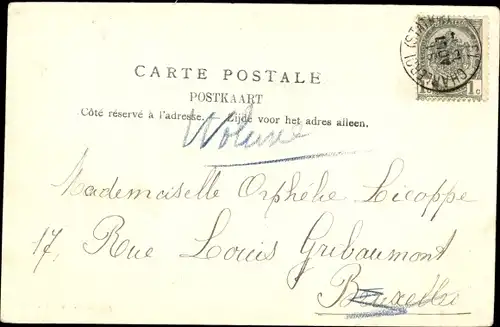 CARTE POSTALE
POSTKAART
Côté réservé à l'adresse. — Zijde voor het adres alleen.
Woluwe
Mademoiselle Orphélie Licoppe
17, Rue Louis Gribaumont
Bruxelles
CHARLEROI (STATION)
1c